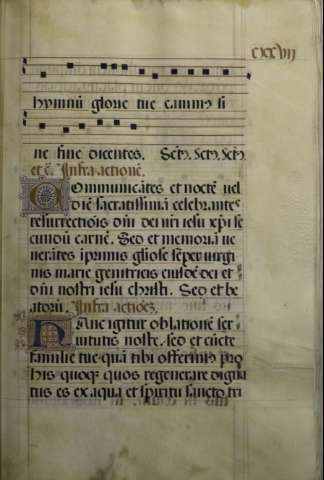 cxxvii
hymnū glorie tue canimꝰ si
ne fine dicentes. Sctꝰ. Sctꝰ. Sctꝰ.
et c̄. Infra actionē.
Communicātes et noctē uel
diē sacratissimā celebrantes
resurrectiōis dn̄i dei nr̄i iesu xp̄i se
cundū carnē. Sed et memoriā ue
nerātes ip̄rimis gliose sēper uirgi
nis marie genitricis eiusdē dei et
dn̄i nostri iesu christi. Sed et be
atorū. Infra actiōez.
Hanc igitur oblationē ser
uitutis nostre. sed et cūcte
familie tue quā tibi offerimꝰ pro
his quoqꝫ quos regenerare digna
tus es ex aqua et spiritu sancto tri